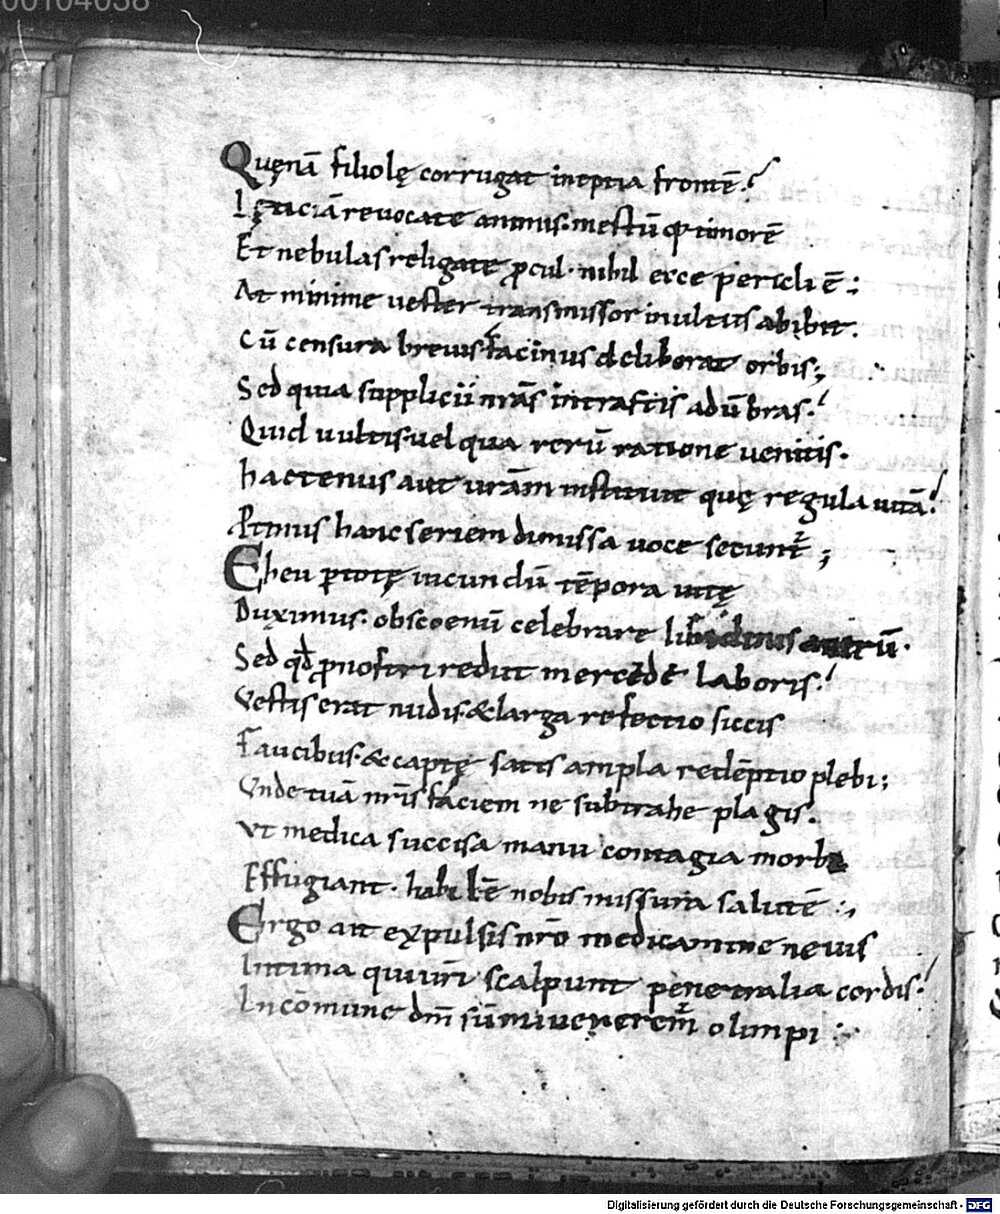 00104038
Quęnā filiolę corrugat ineptia frontē?
Lęticiā reuocate animis. mestūq; timorē
Et nebulas religate ꝓcul. nihil ecce pericli ē;
At minime uester transmissor inultus abibit.
Cū censura breuis facinus deliberat orbis;
Sed quia supplicii nr̄as intrastis ad ūbras?
Quid uultis. uel qua rerū ratione uenitis.
hactenus aut ur̄am instituit quę regula uitā?
Ptinus hanc seriem dimissa uoce secunt̄;
Eheu ꝑ totę iucundū tēpora uitę
Duximus. obscoenū celebrare libidinis antrū.
Sed qd̄ ꝓ nostri redit mercēdē laboris?
Vestis erat nudis. & larga refectio siccis
Faucibus. & captę satis ampla redēptio plebi;
Vnde tuā nr̄is faciem ne subtrahe plagis.
Vt medica succisa manu contagia morbi
Effugiant. habilē nobis missura salutē;
Ergo ait expulsis nr̄o medicamine neuis
Intima qui ur̄i scalpunt penetralia cordis?
In cōmune dn̄m sūmi ueneremr̄ olimpi
Digitalisierung gefördert durch die Deutsche Forschungsgemeinschaft - DFG